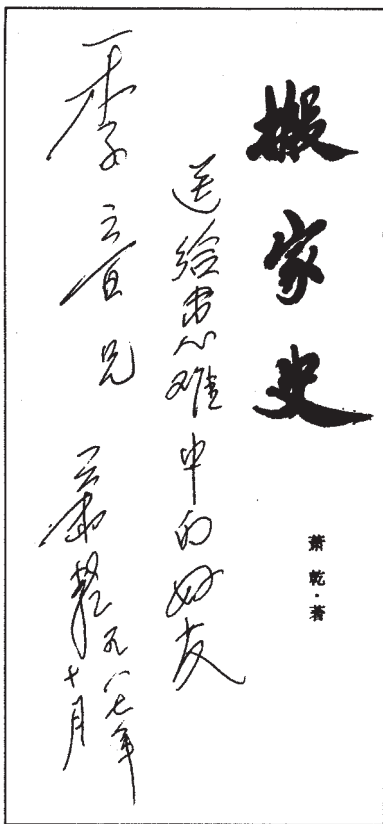 搬家史
萧乾·著
送给患难中的好友
季音兄
萧乾 一九八七年
十月